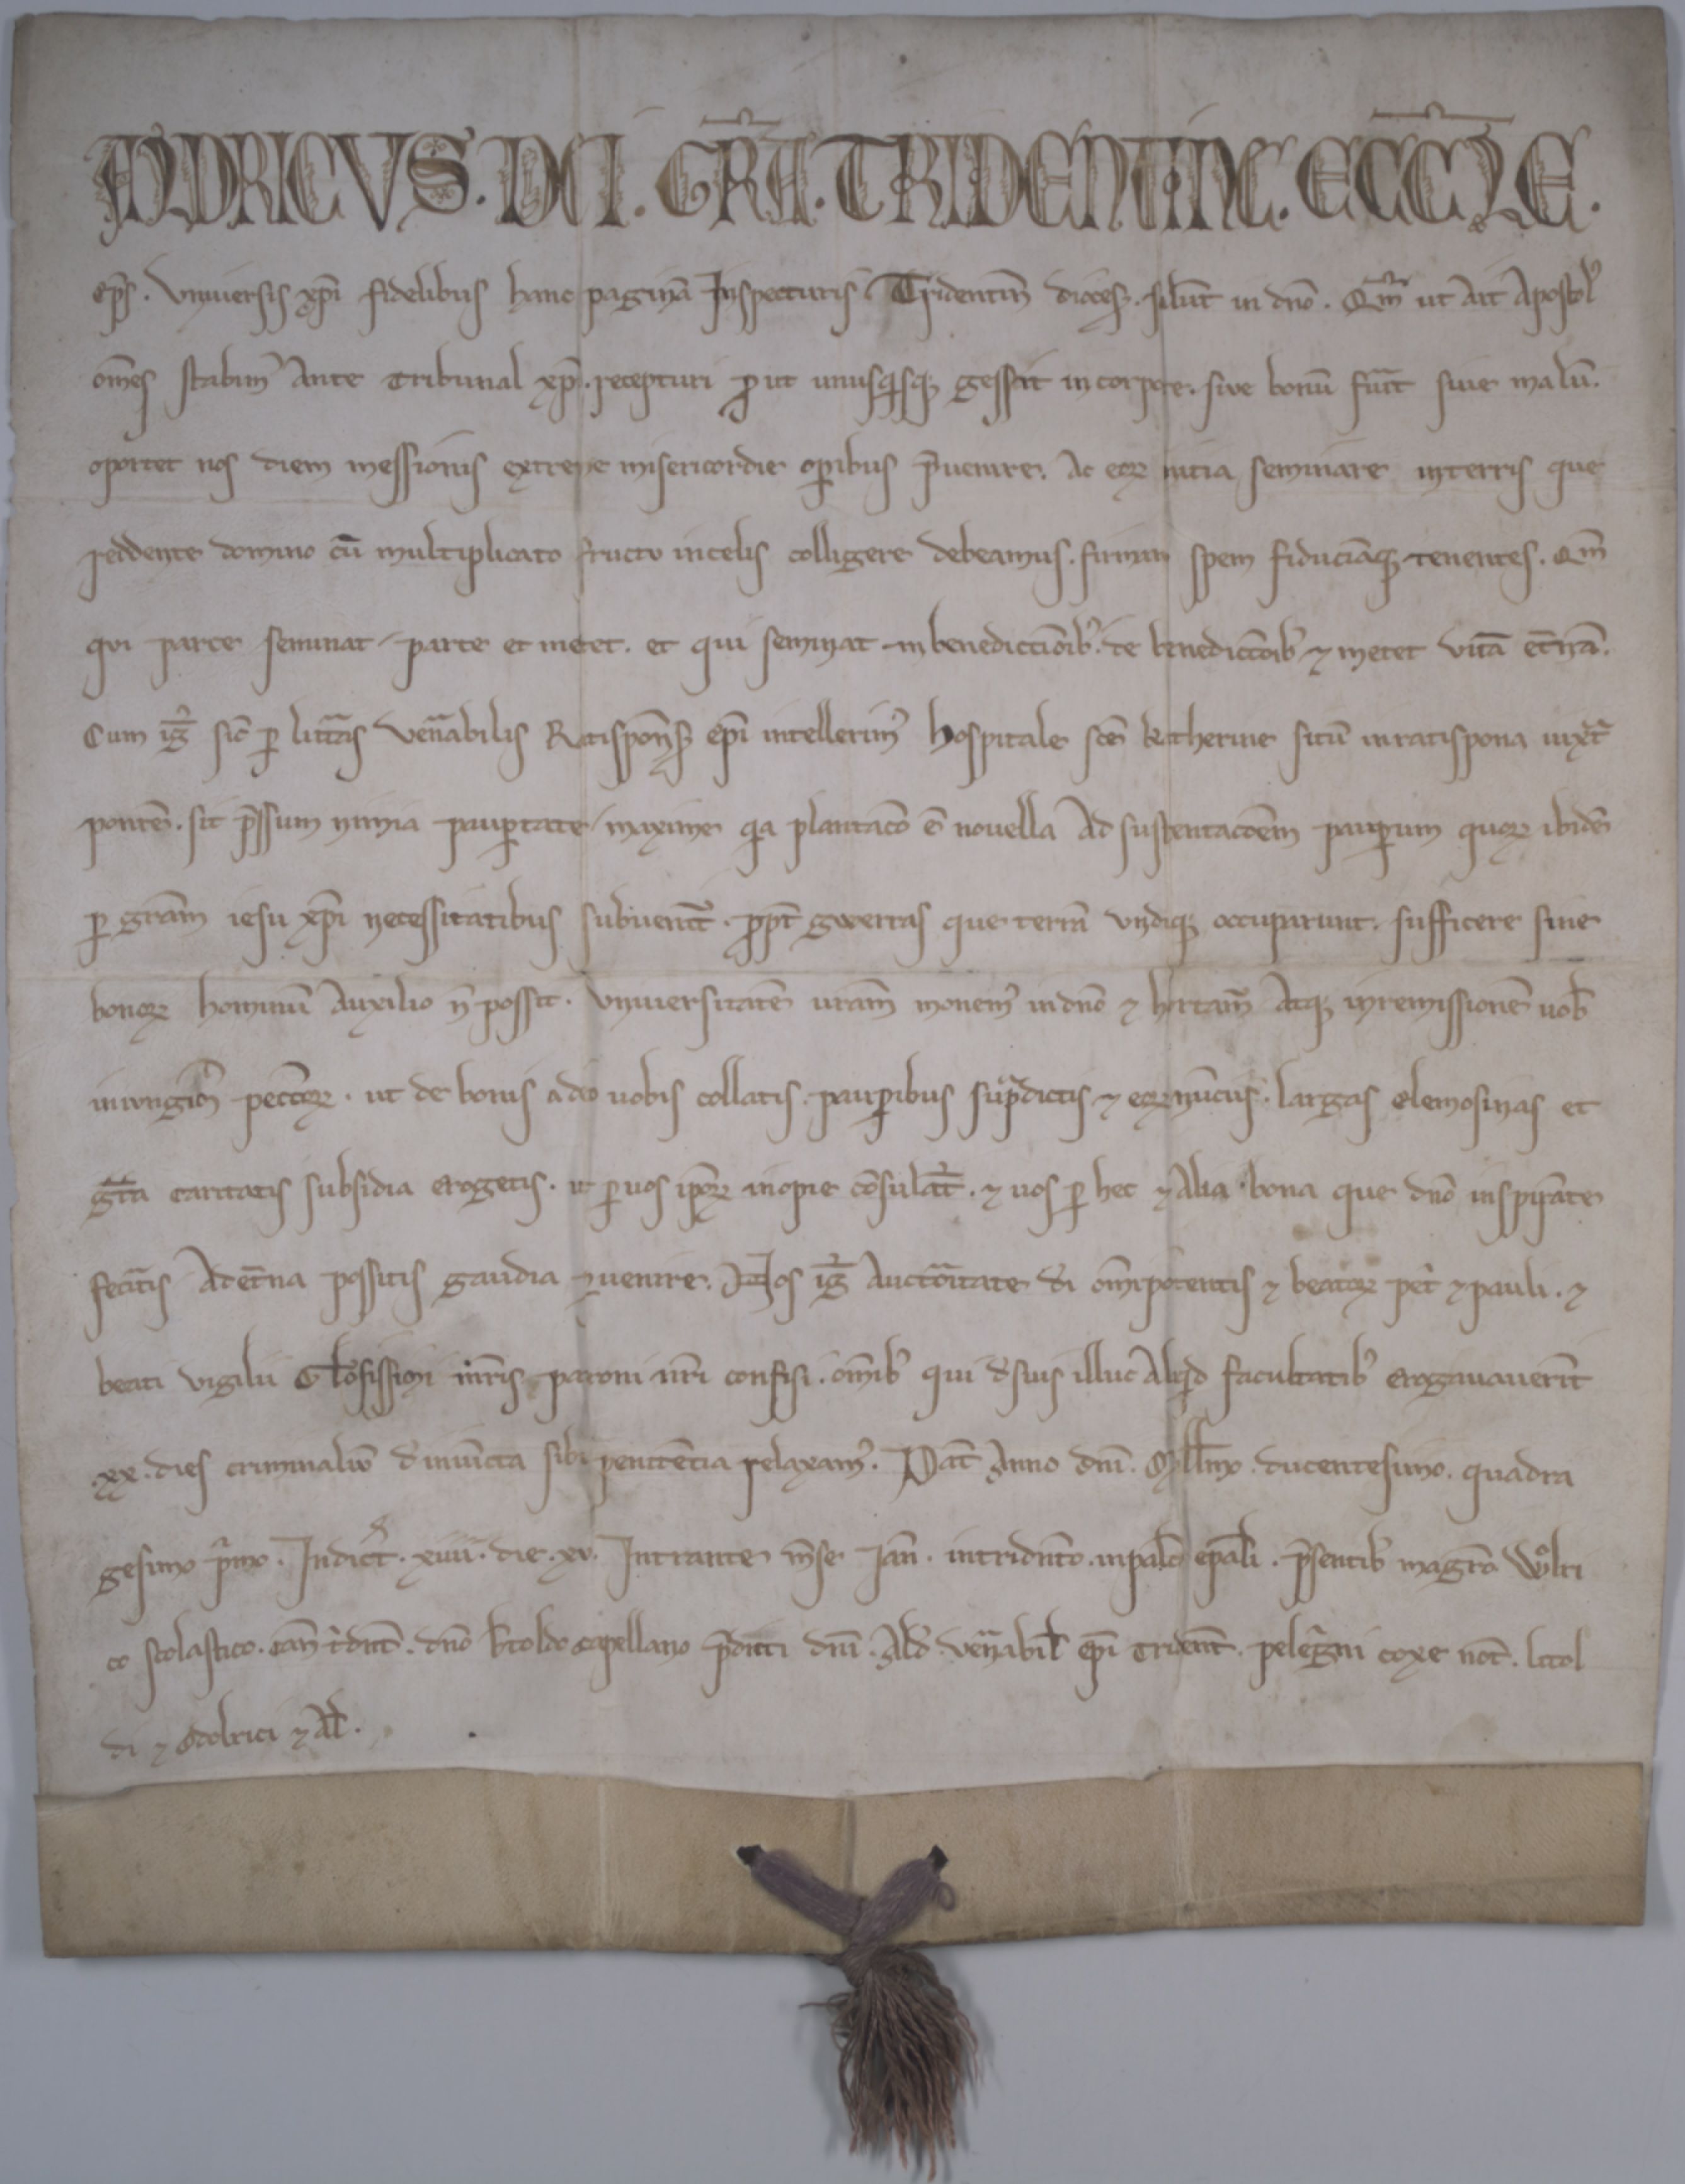 ALDRICVS. DEI. GRA. TRIDENTINE. ECCLE.
eps. Vniuersis xpi fidelibus hanc paginā Inspecturis Tridentin dioces. salūt in dnō. Qm ut Ait Apostol'
om̄es stabim' Ante Tribunal xpi. recepturi put unusqsq; gessit in corpore. sive bonū fu'it siue malū.
oportet nos diem messionis extreme misericordie opibus p̄uenire. Ac eoꝝ initia seminare in terris que
reddente domino cū multiplicato fructu in celis colligere debeamus. firmam spem fiduciāq; tenentes. Qm̄
qui parce seminat parce et metet. et qui seminat in benediccionib'. de benediccōib' ⁊ metet vitā et̄nā.
Cum ig̊ sic̄ ꝑ litt̄as Ven̄abilis Ratispon̄s ep̄i intellexim' hospitale sc̄e katherine sitū in ratispona iuxt̄
pontē. sit p̄ssum nimia paupertate maxime qa plantac̄o ē nouella Ad sustentacōem pauperum quoꝝ ibidē
ꝑ grām iesu xp̄i necessitatibus subuenit̄. ꝓpt̄ gwerras que terrā vndiq; occuparunt. sufficere sine
bonoꝝ hominū Auxilio n̄ possit. Vniuersitatē uram̄ monem' in dnō ⁊ hortam̄ Atq; in remissionē uob'
iniungim' pecc̄oꝝ. ut de bonis a deo uobis collatis. pauperibus sup̄dictis ⁊ eoꝝ nūciis. largas elemosinas et
gr̄ta caritatis subsidia erogetis. ut ꝑ uos ip̄oꝝ inopie cōsulat̄. ⁊ uos ꝑ hec ⁊ Alia bona que dnō inspirāte
fec̄itis Ad et̄na possitis gaudia ꝯuenire. Nos ig̊ Auctoritate di om̄ipotentis ⁊ beatoꝝ pet̄ ⁊ pauli. ⁊
beati vigilii Gl'osissimi mr̄is patroni nr̄i confisi. om̄ib' qui d' suis illuc Aliqd facultatib' erogauauerīt
.xx. dies criminaliū d' iniūcta sibi penitētia relaxam'. Dat̄ Anno dnī. Millm̄o. ducentesimo. quadra
gesimo p̄mo. Indict̄. xiiii. die. xv. Intrante m̄se Ian̄. in tridn̄to. in pal̄co ep̄ali. p̄sentib' magr̄o Wl̊ri
co scolastico. can̄ t'dnt̄. dnō b'toldo capellano p̄dicti dnī. Ald'. Ven̄abil' ep̄i Trident̄. peleg̊ni coxe not̄. litol
di ⁊ Odolrici ⁊ Al'.